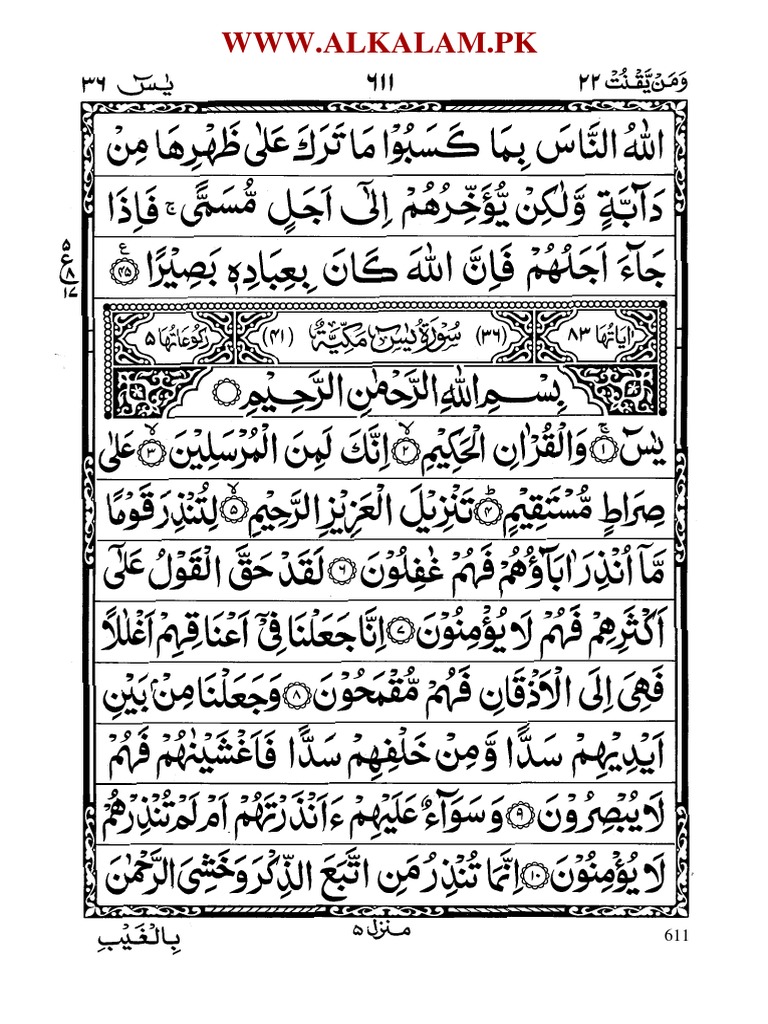 WWW.ALKALAM.PK
وَمَنْ يَّقْنُتْ ٢٢
٦١١
يٰسٓ ٣٦
اللّٰهُ النَّاسَ بِمَا كَسَبُوْا مَا تَرَكَ عَلٰى ظَهْرِهَا مِنْ
دَآبَّةٍ وَّلٰكِنْ يُّؤَخِّرُهُمْ اِلٰٓى اَجَلٍ مُّسَمًّى ۚ فَاِذَا
جَآءَ اَجَلُهُمْ فَاِنَّ اللّٰهَ كَانَ بِعِبَادِهٖ بَصِيْرًا ﴿٤٥﴾
٥ ع ٨ ١٧
اٰيَاتُهَا ٨٣ (٣٦) سُوْرَةُ يٰسٓ مَكِّيَّةٌ (٤١) رُكُوْعَاتُهَا ٥
بِسْمِ اللّٰهِ الرَّحْمٰنِ الرَّحِيْمِ
يٰسٓ ۚ ﴿١﴾ وَالْقُرْاٰنِ الْحَكِيْمِ ۙ ﴿٢﴾ اِنَّكَ لَمِنَ الْمُرْسَلِيْنَ ۙ ﴿٣﴾ عَلٰى
صِرَاطٍ مُّسْتَقِيْمٍ ؕ ﴿٤﴾ تَنْزِيْلَ الْعَزِيْزِ الرَّحِيْمِ ۙ ﴿٥﴾ لِتُنْذِرَ قَوْمًا
مَّآ اُنْذِرَ اٰبَآؤُهُمْ فَهُمْ غٰفِلُوْنَ ﴿٦﴾ لَقَدْ حَقَّ الْقَوْلُ عَلٰٓى
اَكْثَرِهِمْ فَهُمْ لَا يُؤْمِنُوْنَ ﴿٧﴾ اِنَّا جَعَلْنَا فِيْٓ اَعْنَاقِهِمْ اَغْلٰلًا
فَهِيَ اِلَى الْاَذْقَانِ فَهُمْ مُّقْمَحُوْنَ ﴿٨﴾ وَجَعَلْنَا مِنْۢ بَيْنِ
اَيْدِيْهِمْ سَدًّا وَّمِنْ خَلْفِهِمْ سَدًّا فَاَغْشَيْنٰهُمْ فَهُمْ
لَا يُبْصِرُوْنَ ﴿٩﴾ وَسَوَآءٌ عَلَيْهِمْ ءَاَنْذَرْتَهُمْ اَمْ لَمْ تُنْذِرْهُمْ
لَا يُؤْمِنُوْنَ ﴿١٠﴾ اِنَّمَا تُنْذِرُ مَنِ اتَّبَعَ الذِّكْرَ وَخَشِيَ الرَّحْمٰنَ
بِالْغَيْبِ
منزل ٥
611